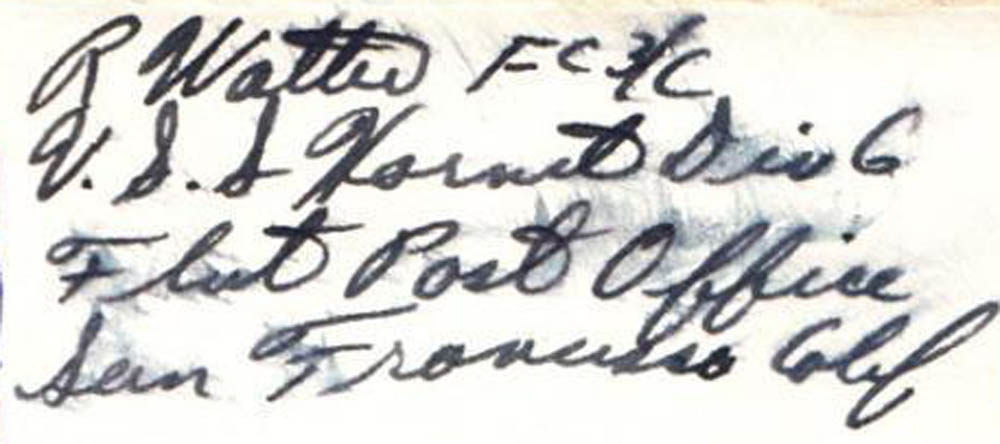 R Watters FC 3/C
U.S.S Hornet Div 6
Fleet Post Office
San Francisco Calif